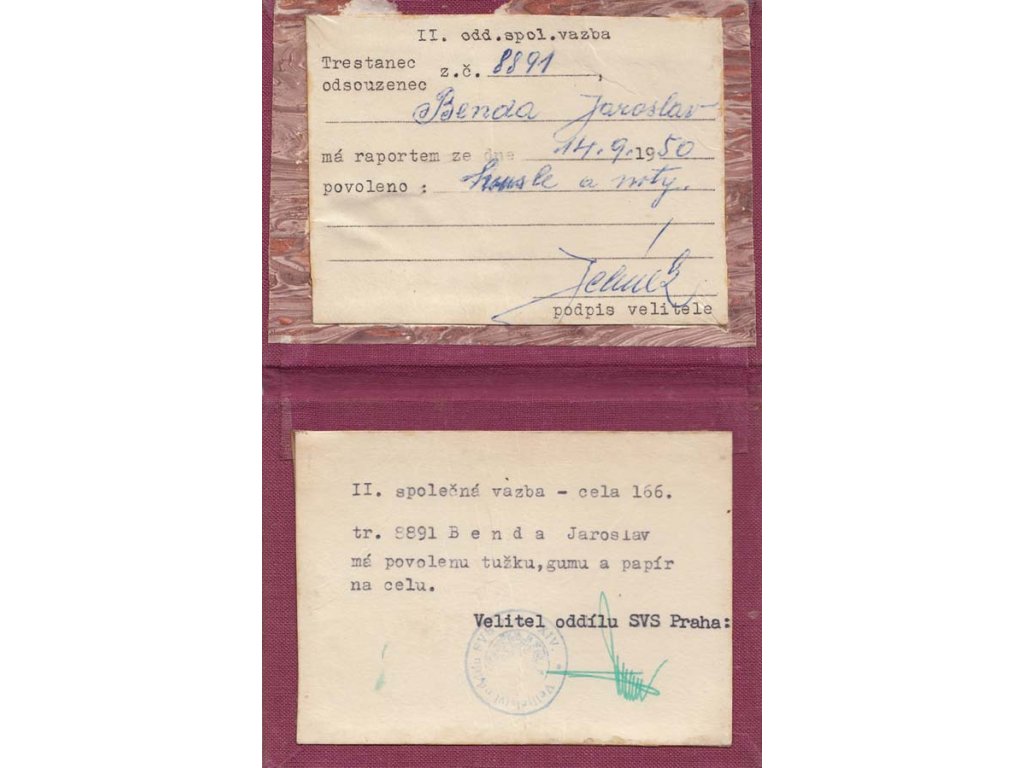 II. odd.spol.vazba
Trestanec
odsouzenec z.č. 8891,
Benda Jaroslav
má raportem ze dne 14.9.1950
povoleno : housle a noty.
Jelínek
podpis velitele
II. společná vazba - cela 166.
tr. 8891 B e n d a Jaroslav
má povolenu tužku,gumu a papír
na celu.
Velitel oddílu SVS Praha: